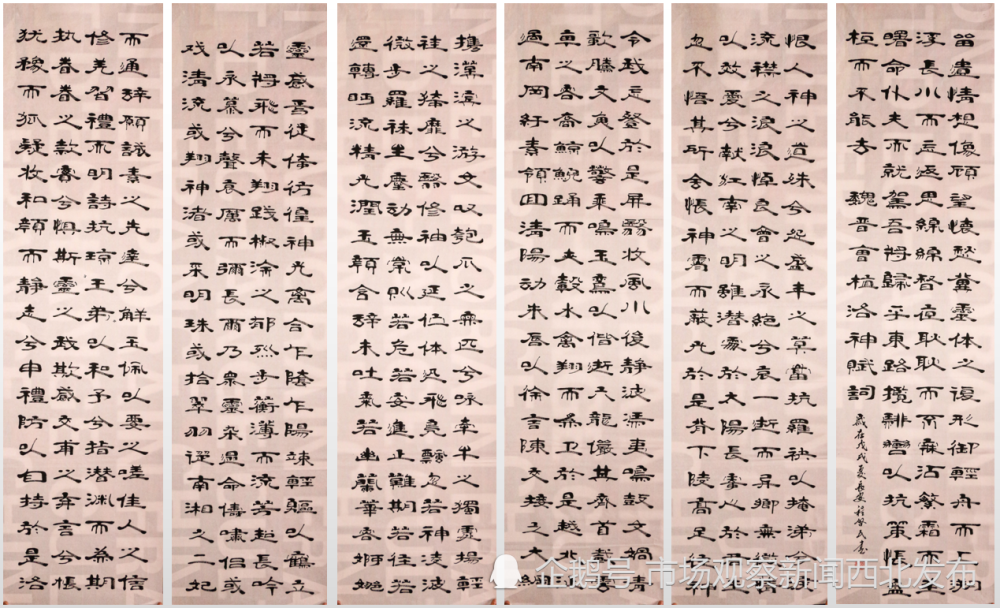 而通辞願誠素之先達兮解玉佩以要之嗟佳人之信
修羌習禮而明詩抗瓊珶以和予兮指潛淵而為期
执眷眷之款實兮惧斯靈之我欺感交甫之棄言兮悵
犹豫而狐疑收和顏而静志兮申禮防以自持於是洛
靈感焉徒倚彷徨神光离合乍陰乍陽竦輕軀以鶴立
若将飛而未翔踐椒涂之郁烈步蘅薄而流芳超長吟
以永慕兮聲哀厲而彌長爾乃眾靈杂遝命儔嘯侣或
戏清流或翔神渚或采明珠或拾翠羽從南湘之二妃
攜漢濱之游女叹匏瓜之無匹兮咏牽牛之獨處揚輕
袿之猗靡兮翳修袖以延佇体迅飛鳧飄忽若神凌波
微步羅袜生塵動無常則若危若安進止難期若往若
還轉眄流精光潤玉顏含辞未吐氣若幽蘭華容婀娜
令我忘餐於是屏翳收風川後靜波馮夷鳴鼓女媧清
歌騰文魚以警乘鳴玉鸞以偕逝六龍儼其齊首載雲
車之容裔鯨鯢踊而夹轂水禽翔而為卫於是越北沚
過南岡紆素領回清陽動朱唇以徐言陳交接之大綱
恨人神之道殊兮怨盛年之莫當抗羅袂以掩涕兮淚
流襟之浪浪悼良會之永絕兮哀一逝而異鄉無微情
以效愛兮献江南之明雖潜處於太陽長寄心於君王
忽不悟其所舍悵神宵而蔽光於是背下陵高足往神
留遺情想像顧望懷愁冀靈体之復形御輕舟而上溯
浮長川而忘返思綿綿督夜耿耿而不寐沾繁霜而至
曙命仆夫而就駕吾将歸乎東路攬騑轡以抗策悵盤
桓而不能去 魏晋曹植洛神賦詞
歲在戊戌夏長安
企鹅号 市场观察新闻西北发布